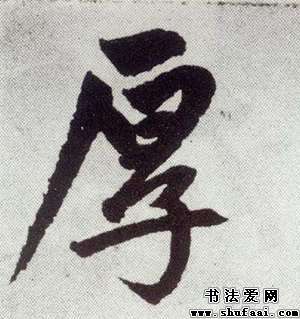 厚
书法爱网
www.shufaai.com